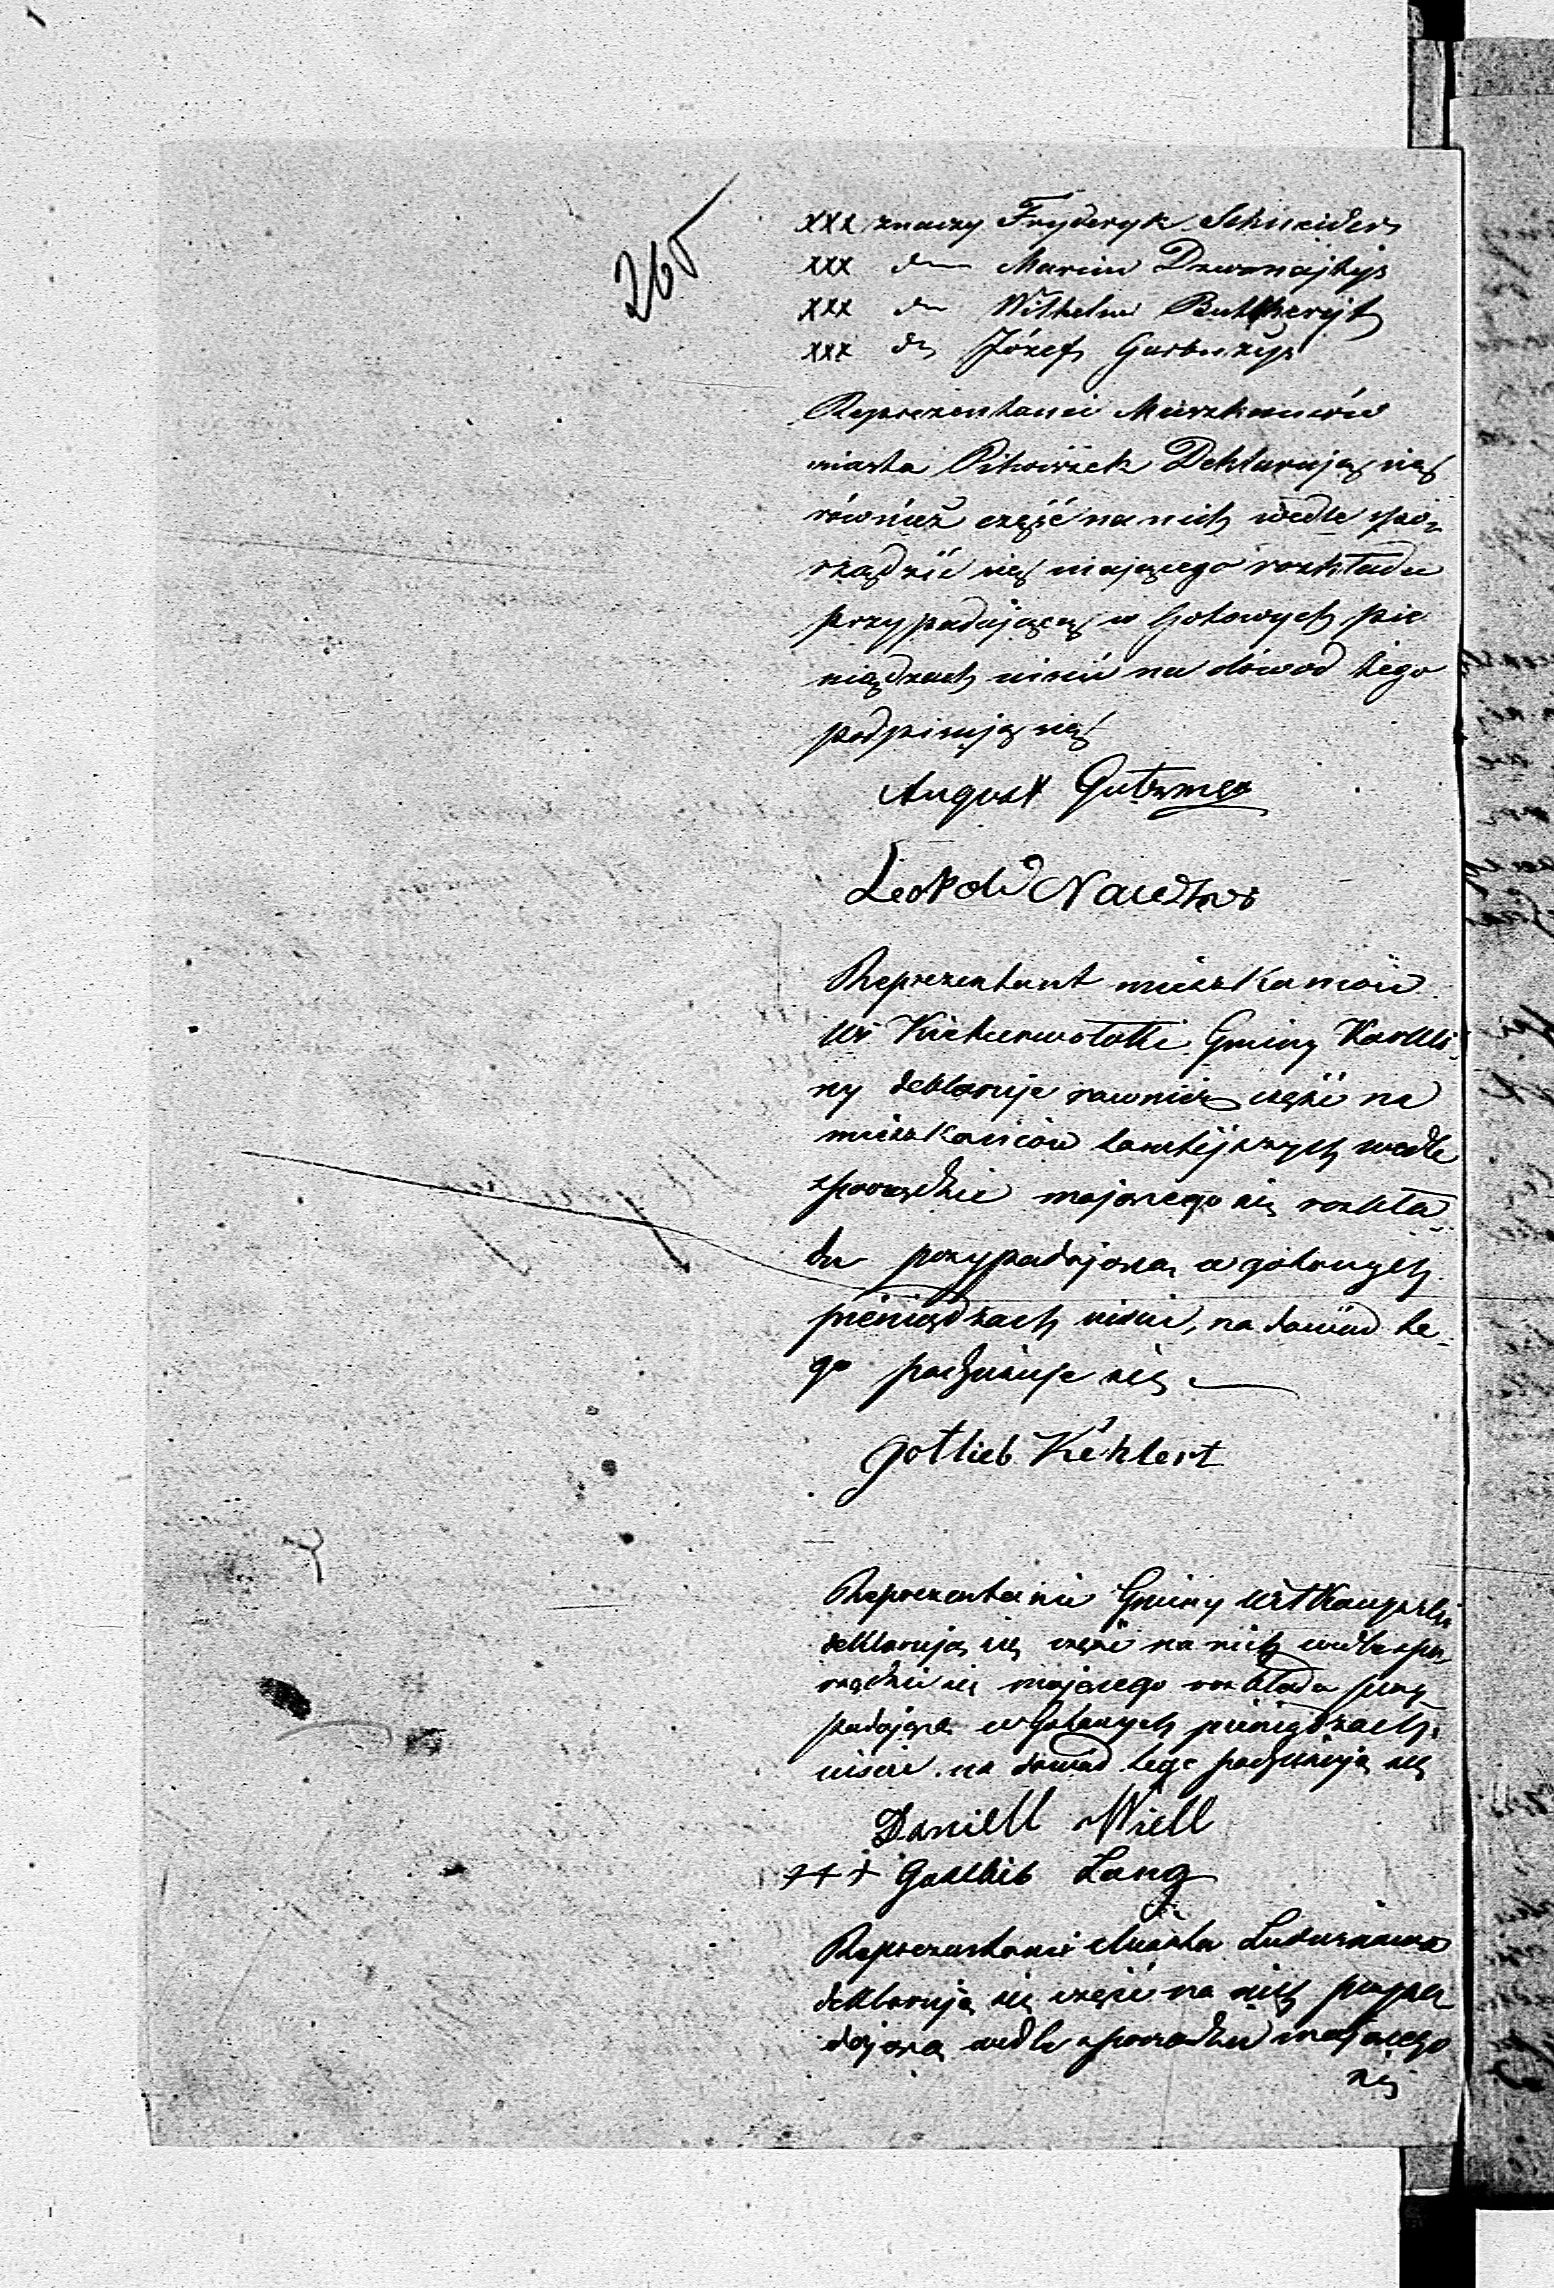 265
xxx znaczy Fryderyk Schneider
xxx dto Marcin Dzwonajtys
xxx dto Wilhelm
xxx dto Józef Garbużys
Reprezentanci Mieszkańców
miasta Pilwiszek Deklarują się
również część na nich wedle spo-
rządzić się mającego rozkładu
przypadającą w Gotowych pie
niądzach uiścić na dowód tego
podpisują się
August Gutzmer
Leopold
Reprezentant mieszkańców
Wsi Gminy Karkli-
ny deklaruje rownież część na
mieszkańców tamtéjszych wedle
sporządzić mającego się rozkła-
du przypadającą w gotowych
pieniądzach uiścić, na dowód te-
go podpisuje się
Gotlieb Kehlert
Reprezentanci Gminy Witkanpeski
deklarują się część na nich wedle spo-
rządzić się mającego rozkładu przy
padającą w Gotowych pieniądzach
uiścić na dowód tego podpisują się
Daniell Wiell
+++ Gottlieb Lang
Reprezentanci Miasta Ludwinowa
deklarują się część na nich przypa
dającą wedle sporządzić mającego
się